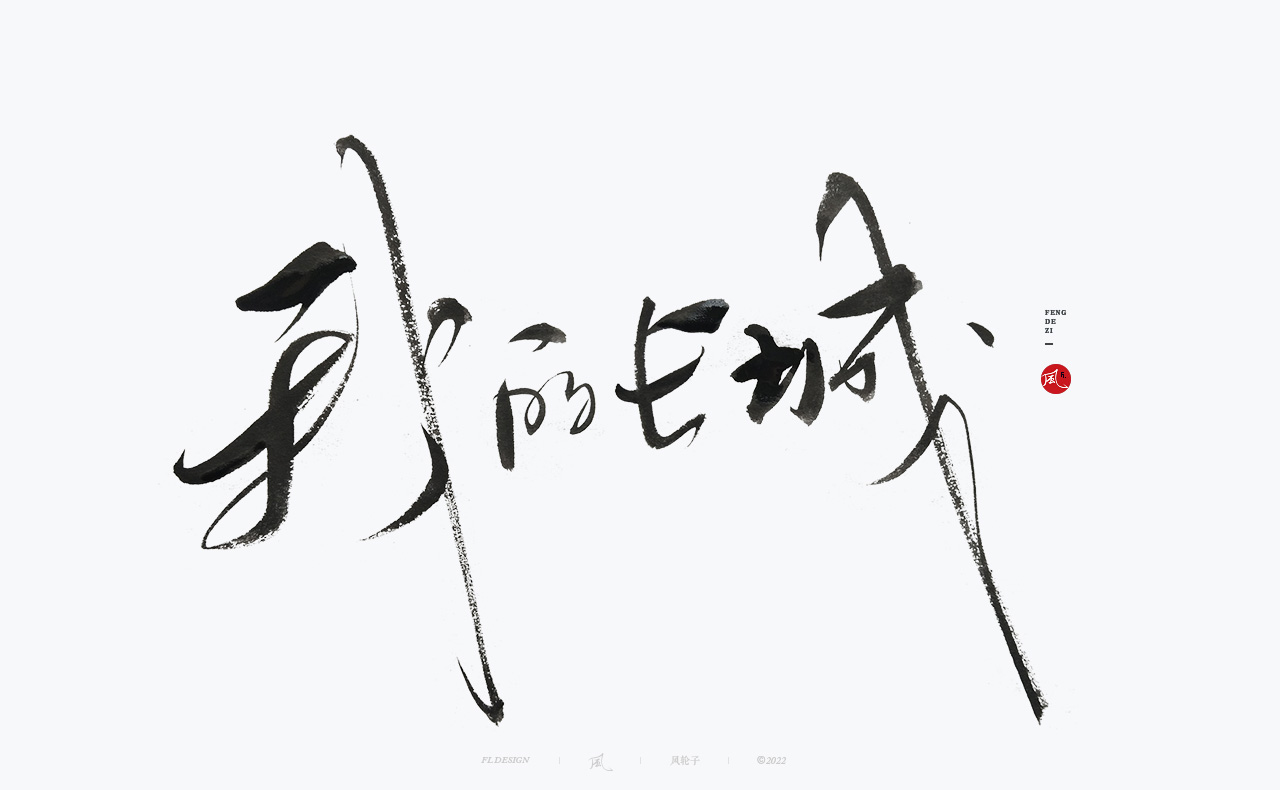 我的长城
FENG
DE
ZI
風
FL.DESIGN
風
风轮子
©2022